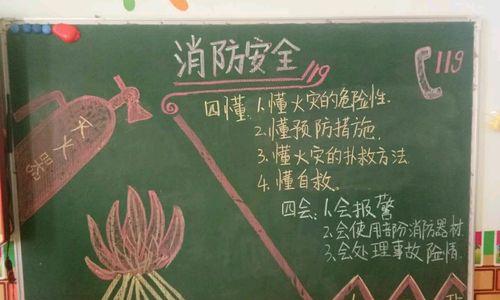 消防安全
119
119
灭火器
四懂：1.懂火灾的危险性.
2.懂预防措施.
3.懂火灾的扑救方法.
4.懂自救.
四会：1.会报警
2.会使用部份消防器材
3.会处理事故险情.